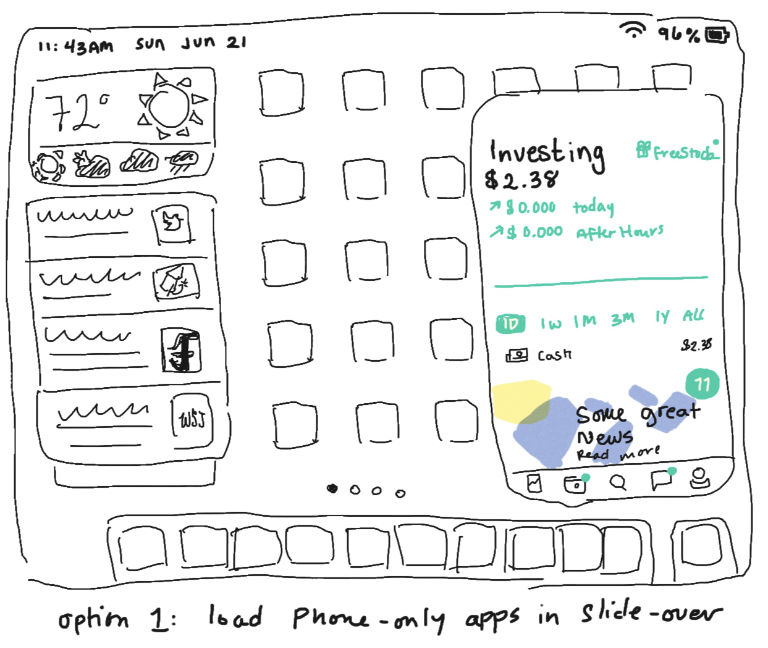 11:43AM Sun Jun 21
96%
72°
Investing
$2.38
Free Stock
↗$0.000 Today
↗$0.000 After Hours
1D 1W 1M 3M 1Y ALL
Cash $2.38
11
Some great
News
Read more
WSJ
option 1: load Phone-only apps in Slide-over